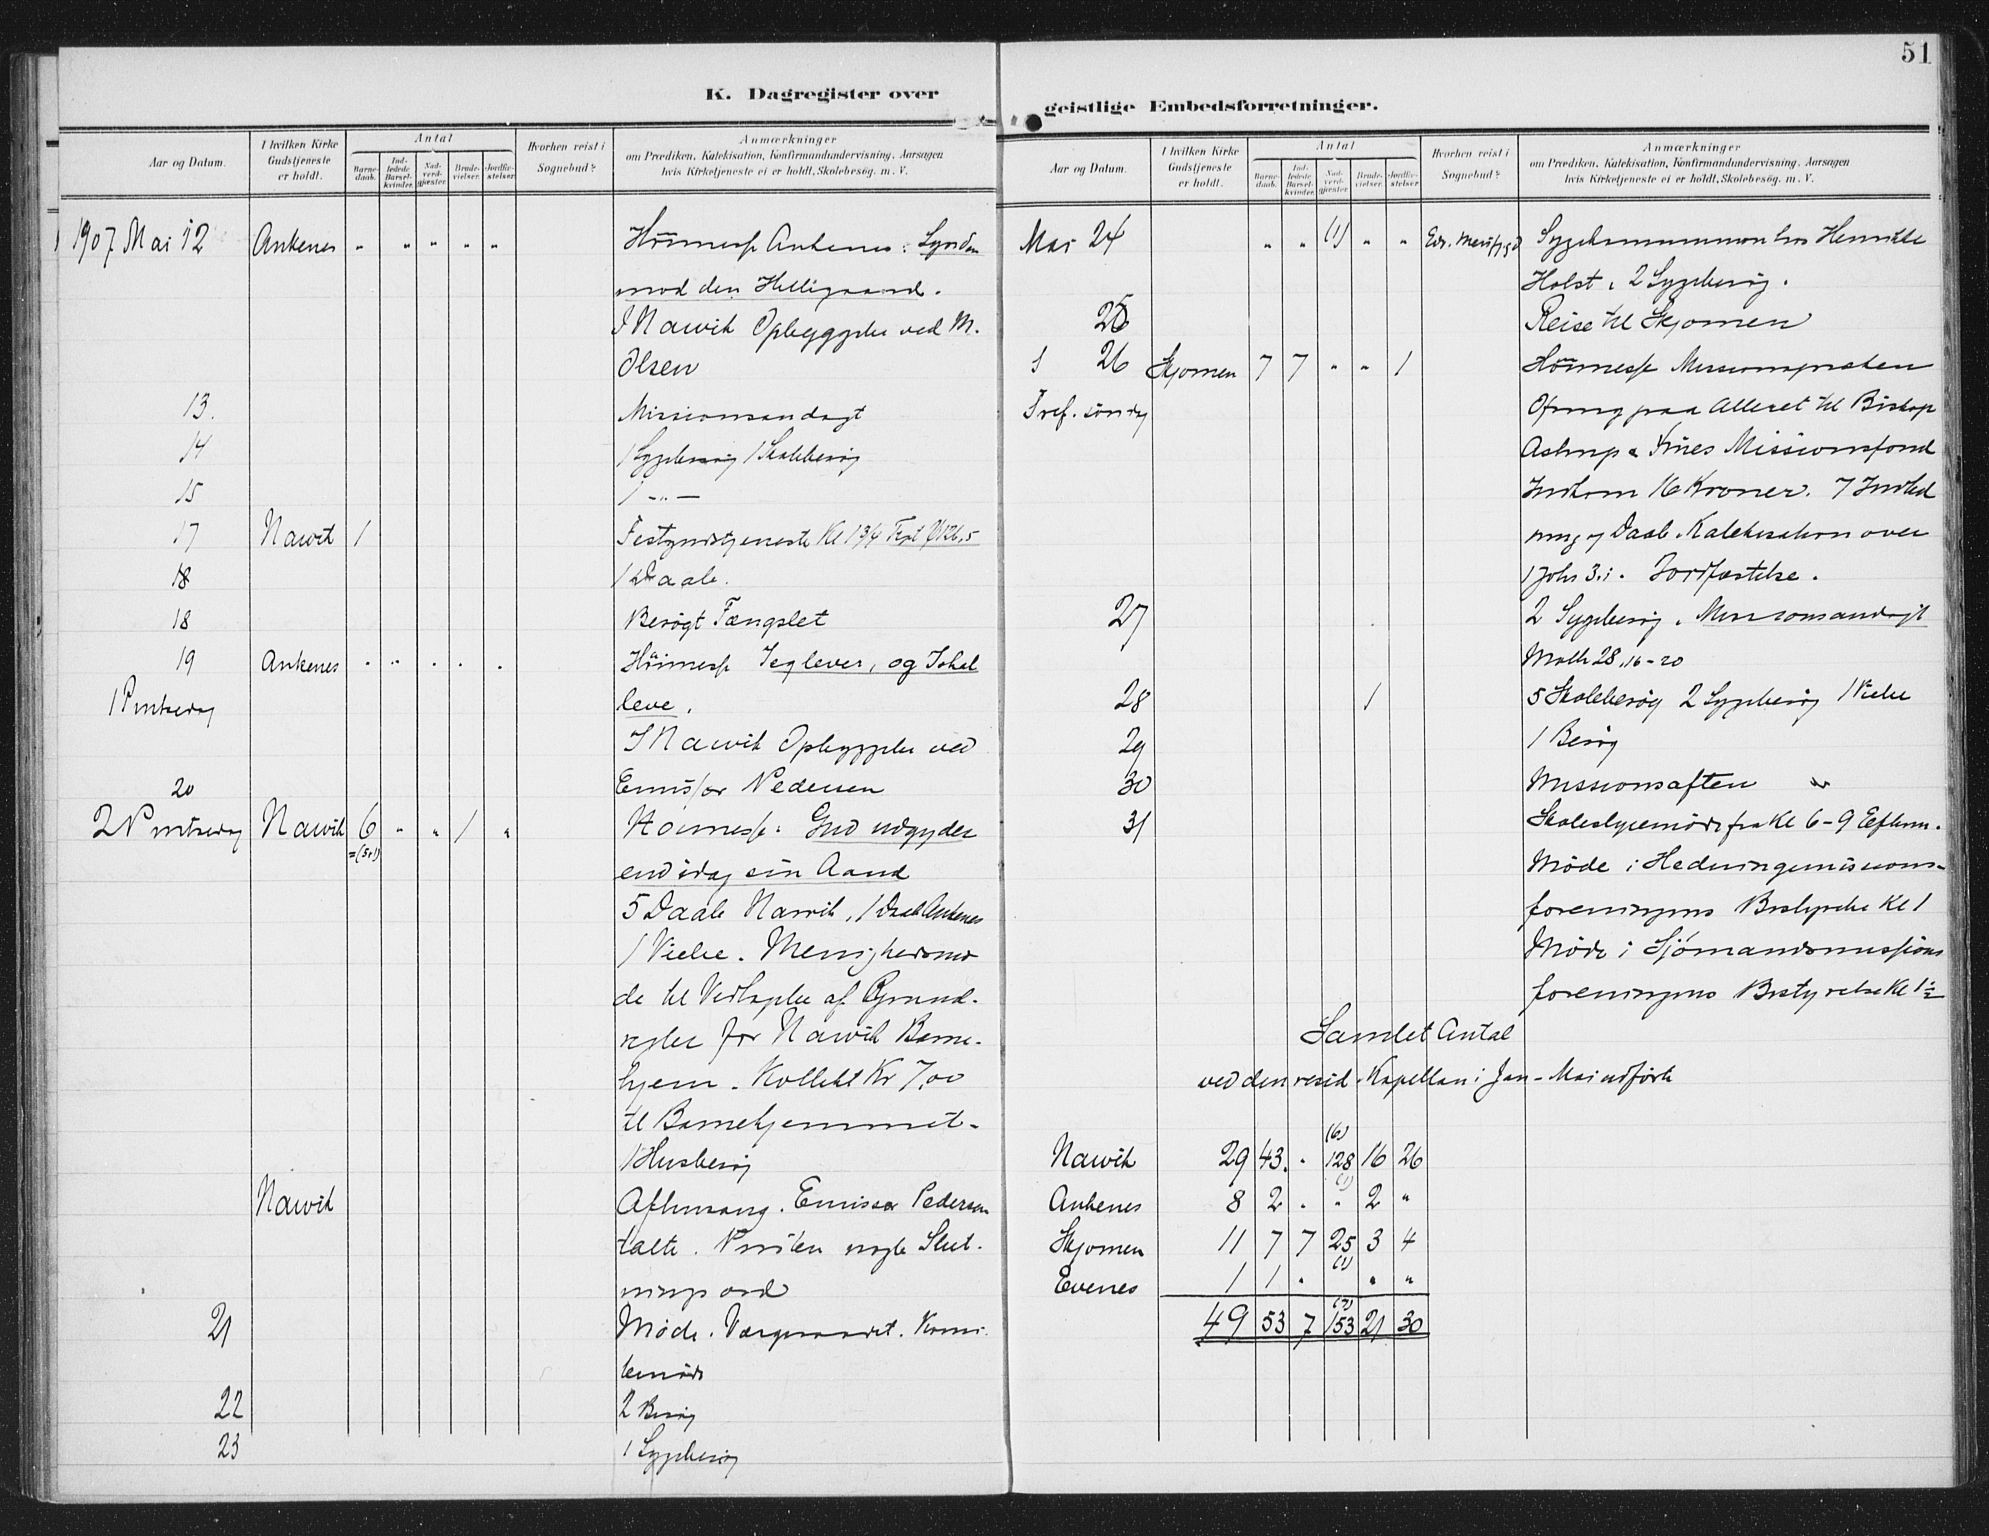 51
K. Dagregister over
geistlige Embedsforretninger.
Aar og Datum.
I hvilken Kirke Gudstjeneste er holdt.
Antal
Barnedaab.
Indledede Barselkvinder.
Nadverdgjæster.
Brudevielser.
Jordfæstelser.
Hvorhen reist i Sognebud?
Anmærkninger
om Prædiken, Katekisation, Konfirmandundervisning, Aarsagen
hvis Kirketjeneste ei er holdt, Skolebesøg. m. V.
1907 Mai 12 Ankenes " " " " " Høimesse Ankenes: Synden
mod den Helligaand.
I Narvik Opbyggelse ved M.
Olsen
13. Missionsandagt
14 1 Sygebesøg 1 Skolebesøg
15 1 -"-
17 Narvik 1 Festgudstjeneste Kl 1 3/4
18 1 Daab.
18 Besøgt Fængslet
19 Ankenes " " " " " Høimesse Jeg lever, og I skal
1 Pintsedag leve.
I Narvik Opbyggelse ved
20 Emissær Pedersen
2 Pintsedag Narvik 6 " " 1 " Høimesse: Gud udgyder
=(5+1) end idag sin Aand
5 Daab Narvik, 1 Daab Ankenes
1 Vielse. Menighedsmø
de til Vedtagelse af Grund-
regler for Narvik Barne-
hjem. Kollekt Kr 7,00
til Barnehjemmet.
1 Husbesøg
Narvik Aftensang. Emissær Pedersen
talte. Præsten nogle Slut-
ningsord
21 Møde. Værgeraadet. Komi
temøde
22 2 Besøg
23 1 Sygebesøg
Aar og Datum.
I hvilken Kirke Gudstjeneste er holdt.
Antal
Barnedaab.
Indledede Barselkvinder.
Nadverdgjæster.
Brudevielser.
Jordfæstelser.
Hvorhen reist i Sognebud?
Anmærkninger
om Prædiken, Katekisation, Konfirmandundervisning, Aarsagen
hvis Kirketjeneste ei er holdt, Skolebesøg. m. V.
Mai 24 " " (1) " " Sygekommunion hos Henrikke
Holst. 2 Sygebesøg.
25 Reise til Skjomen
S 26 Skjomen 7 7 " " 1 Høimesse Missionspræken
Tref. søndag Ofring paa Alteret til Biskop
Astrup's Missionsfond
Indkom 16 Kroner. 7 Indled
ning og Daab. Katekisation over
1 Joh 3.1. Jordfæstelse.
27 2 Sygebesøg. Missionsandagt
Math 28, 16-20
28 1 5 Skolebesøg 2 Sygebesøg 1 Vielse
29 1 Besøg
30 Missionsaften
31 Skolestyremøde fra Kl 6-9 Efterm.
Møde i Hedningemissions-
foreningens Bestyrelse Kl 1
Møde i Sjømandsmissions
foreningens Bestyrelse Kl 1 1/2
Samlet Antal
ved den resid. Kapellan i Jan - Mai udført
(6)
Narvik 29 43. " 128 16 26
(1)
Ankenes 8 2 " " 2 "
Skjomen 11 7 7 25 3 4
(1)
Evenes 1 1 " " "
49 53 7 153 21 30